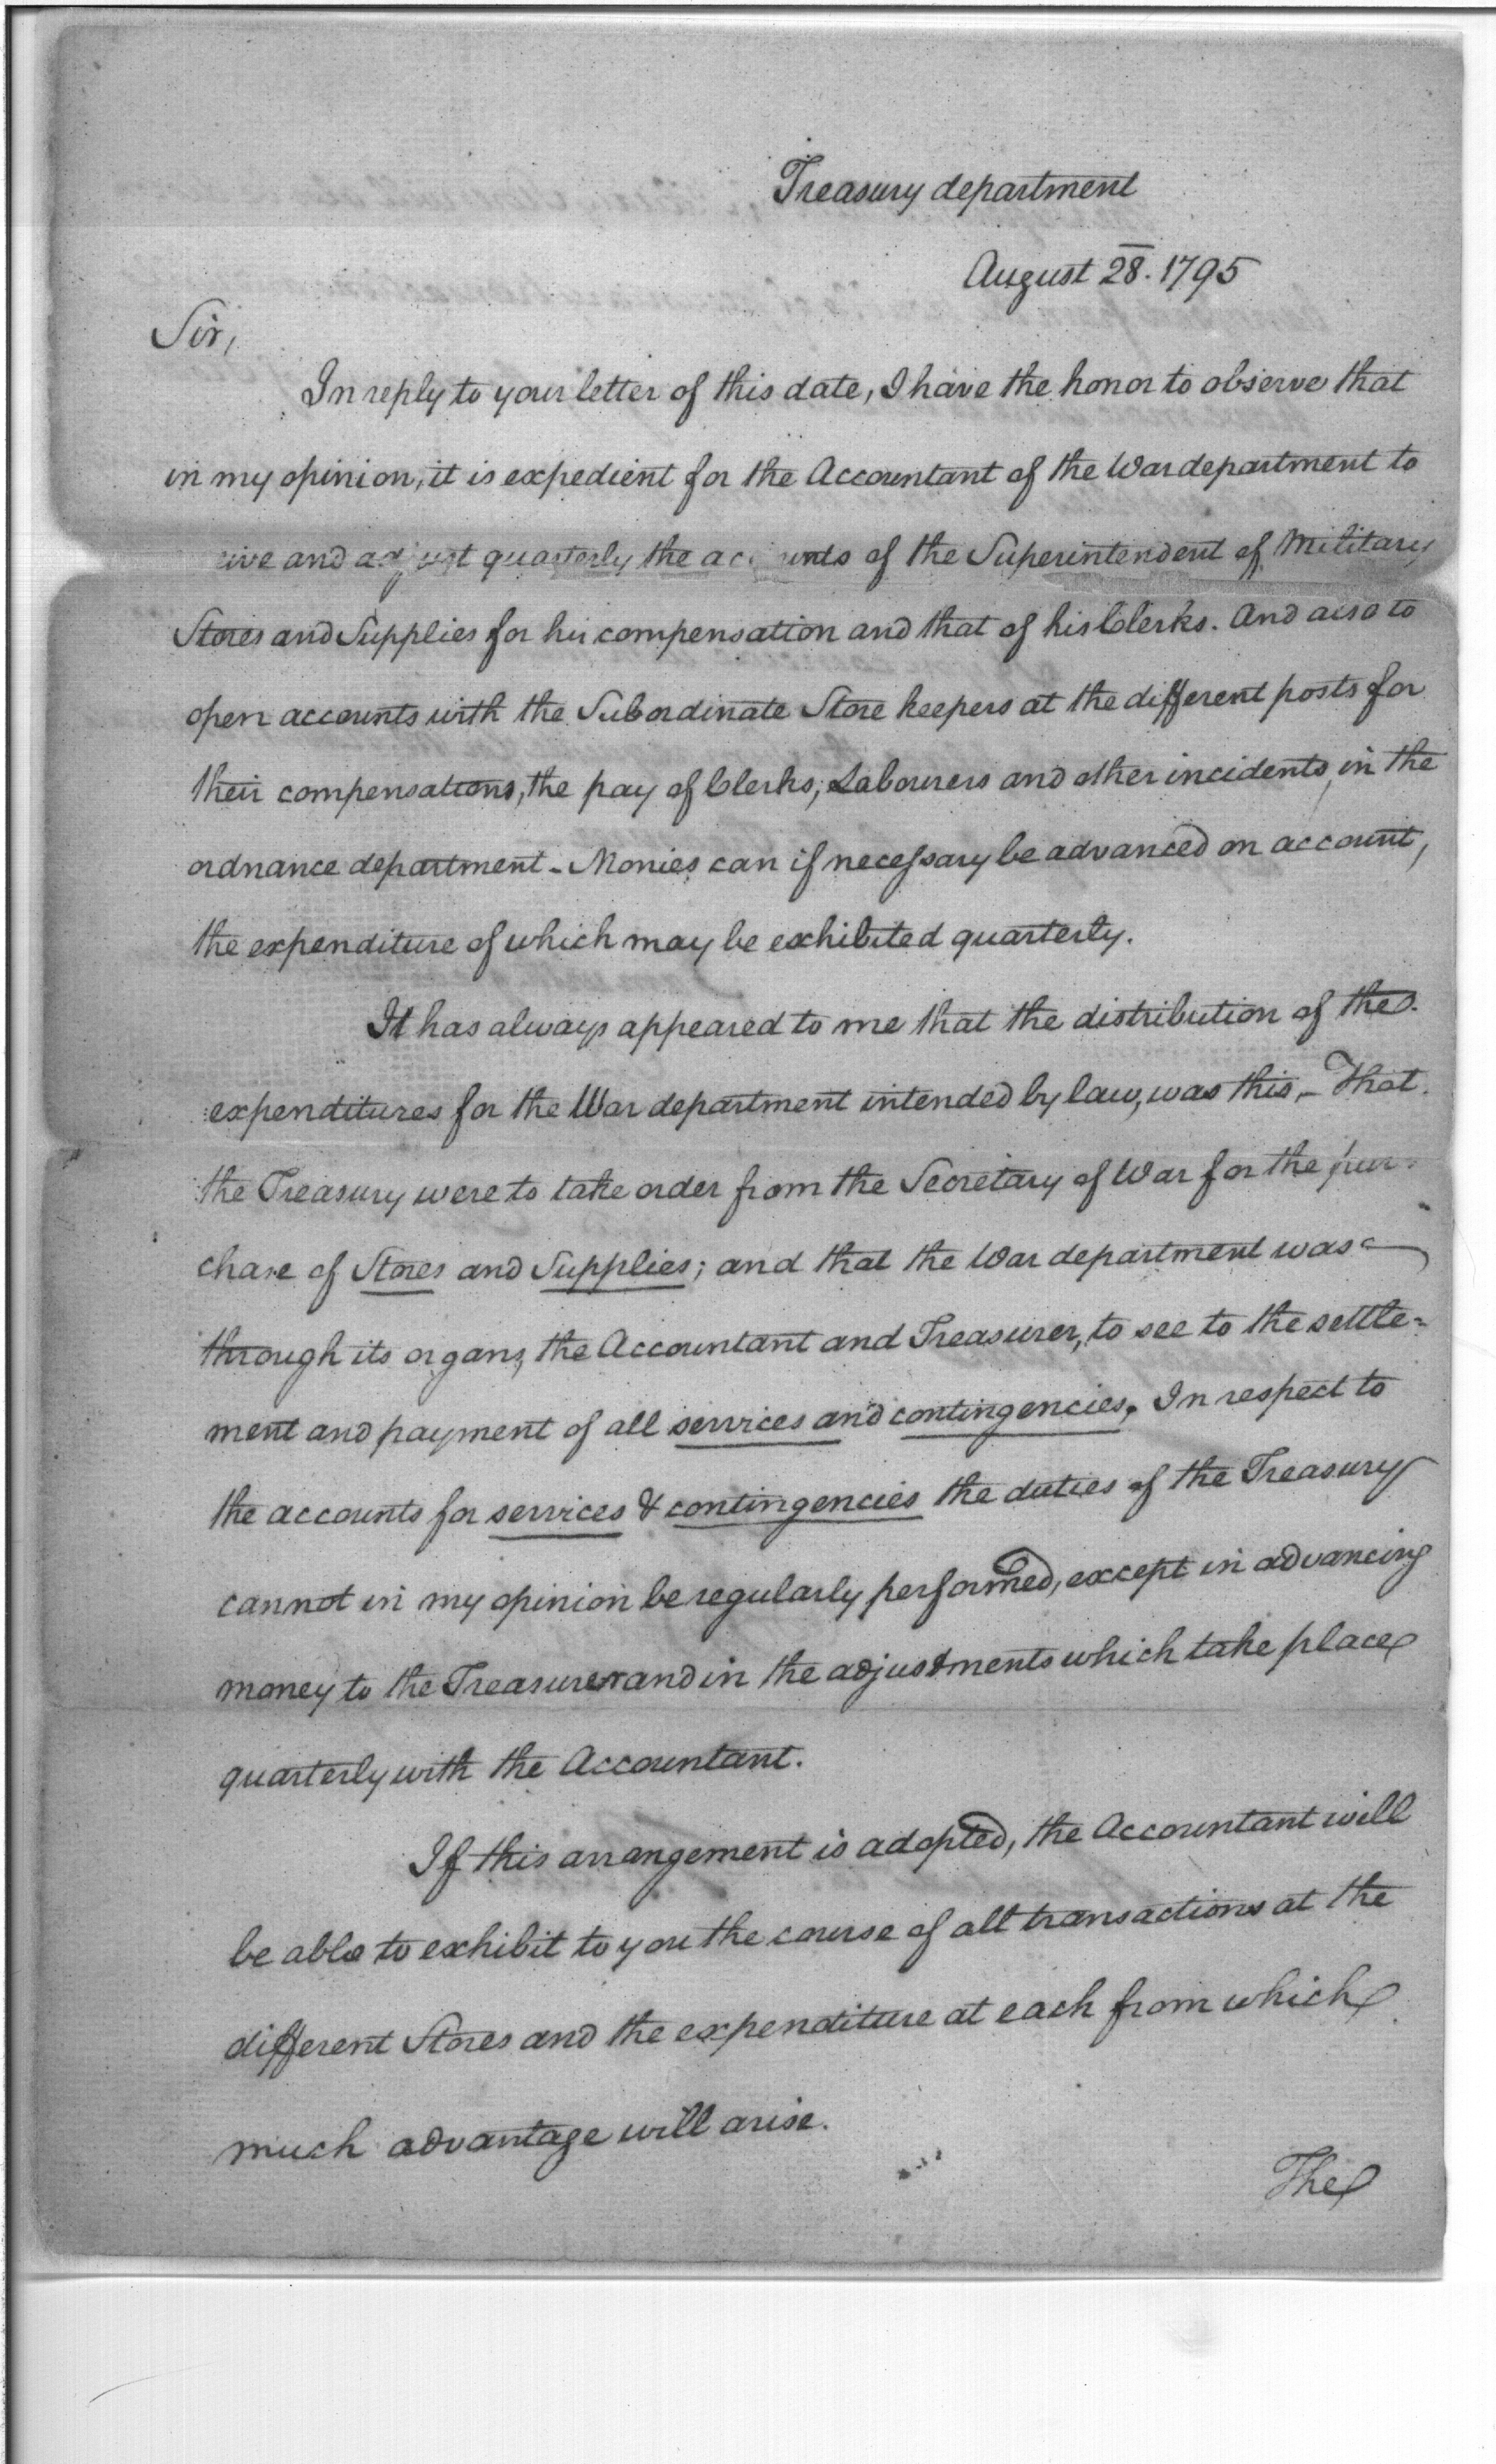 Treasury department
August 28. 1795
Sir,
In reply to your letter of this date, I have the honor to observe that
in my opinion, it is expedient for the Accountant of the War department to
ive and adjust quarterly the acc unts of the Superintendent of Military
Stores and Supplies for his compensation and that of his Clerks. And also to
open accounts with the Subordinate Store keepers at the different posts for
their compensations, the pay of Clerks, Labourers and other incidents, in the
ordnance department - Monies can if necessary be advanced on account,
the expenditure of which may be exhibited quarterly.
It has always appeared to me that the distribution of the
expenditures for the War department intended by law, was this, - That
the Treasury were to take order from the Secretary of War for the pur-
chase of Stores and Supplies; and that the War department was
through its organs, the Accountant and Treasurer, to see to the settle=
ment and payment of all services and contingencies. In respect to
the accounts for services & contingencies the duties of the Treasury
cannot in my opinion be regularly performed, except in advancing
money to the Treasurer and in the adjustments which take place
quarterly with the Accountant.
If this arrangement is adopted, the Accountant will
be able to exhibit to you the course of all transactions at the
different Stores and the expenditure at each from which
much advantage will arise.
The